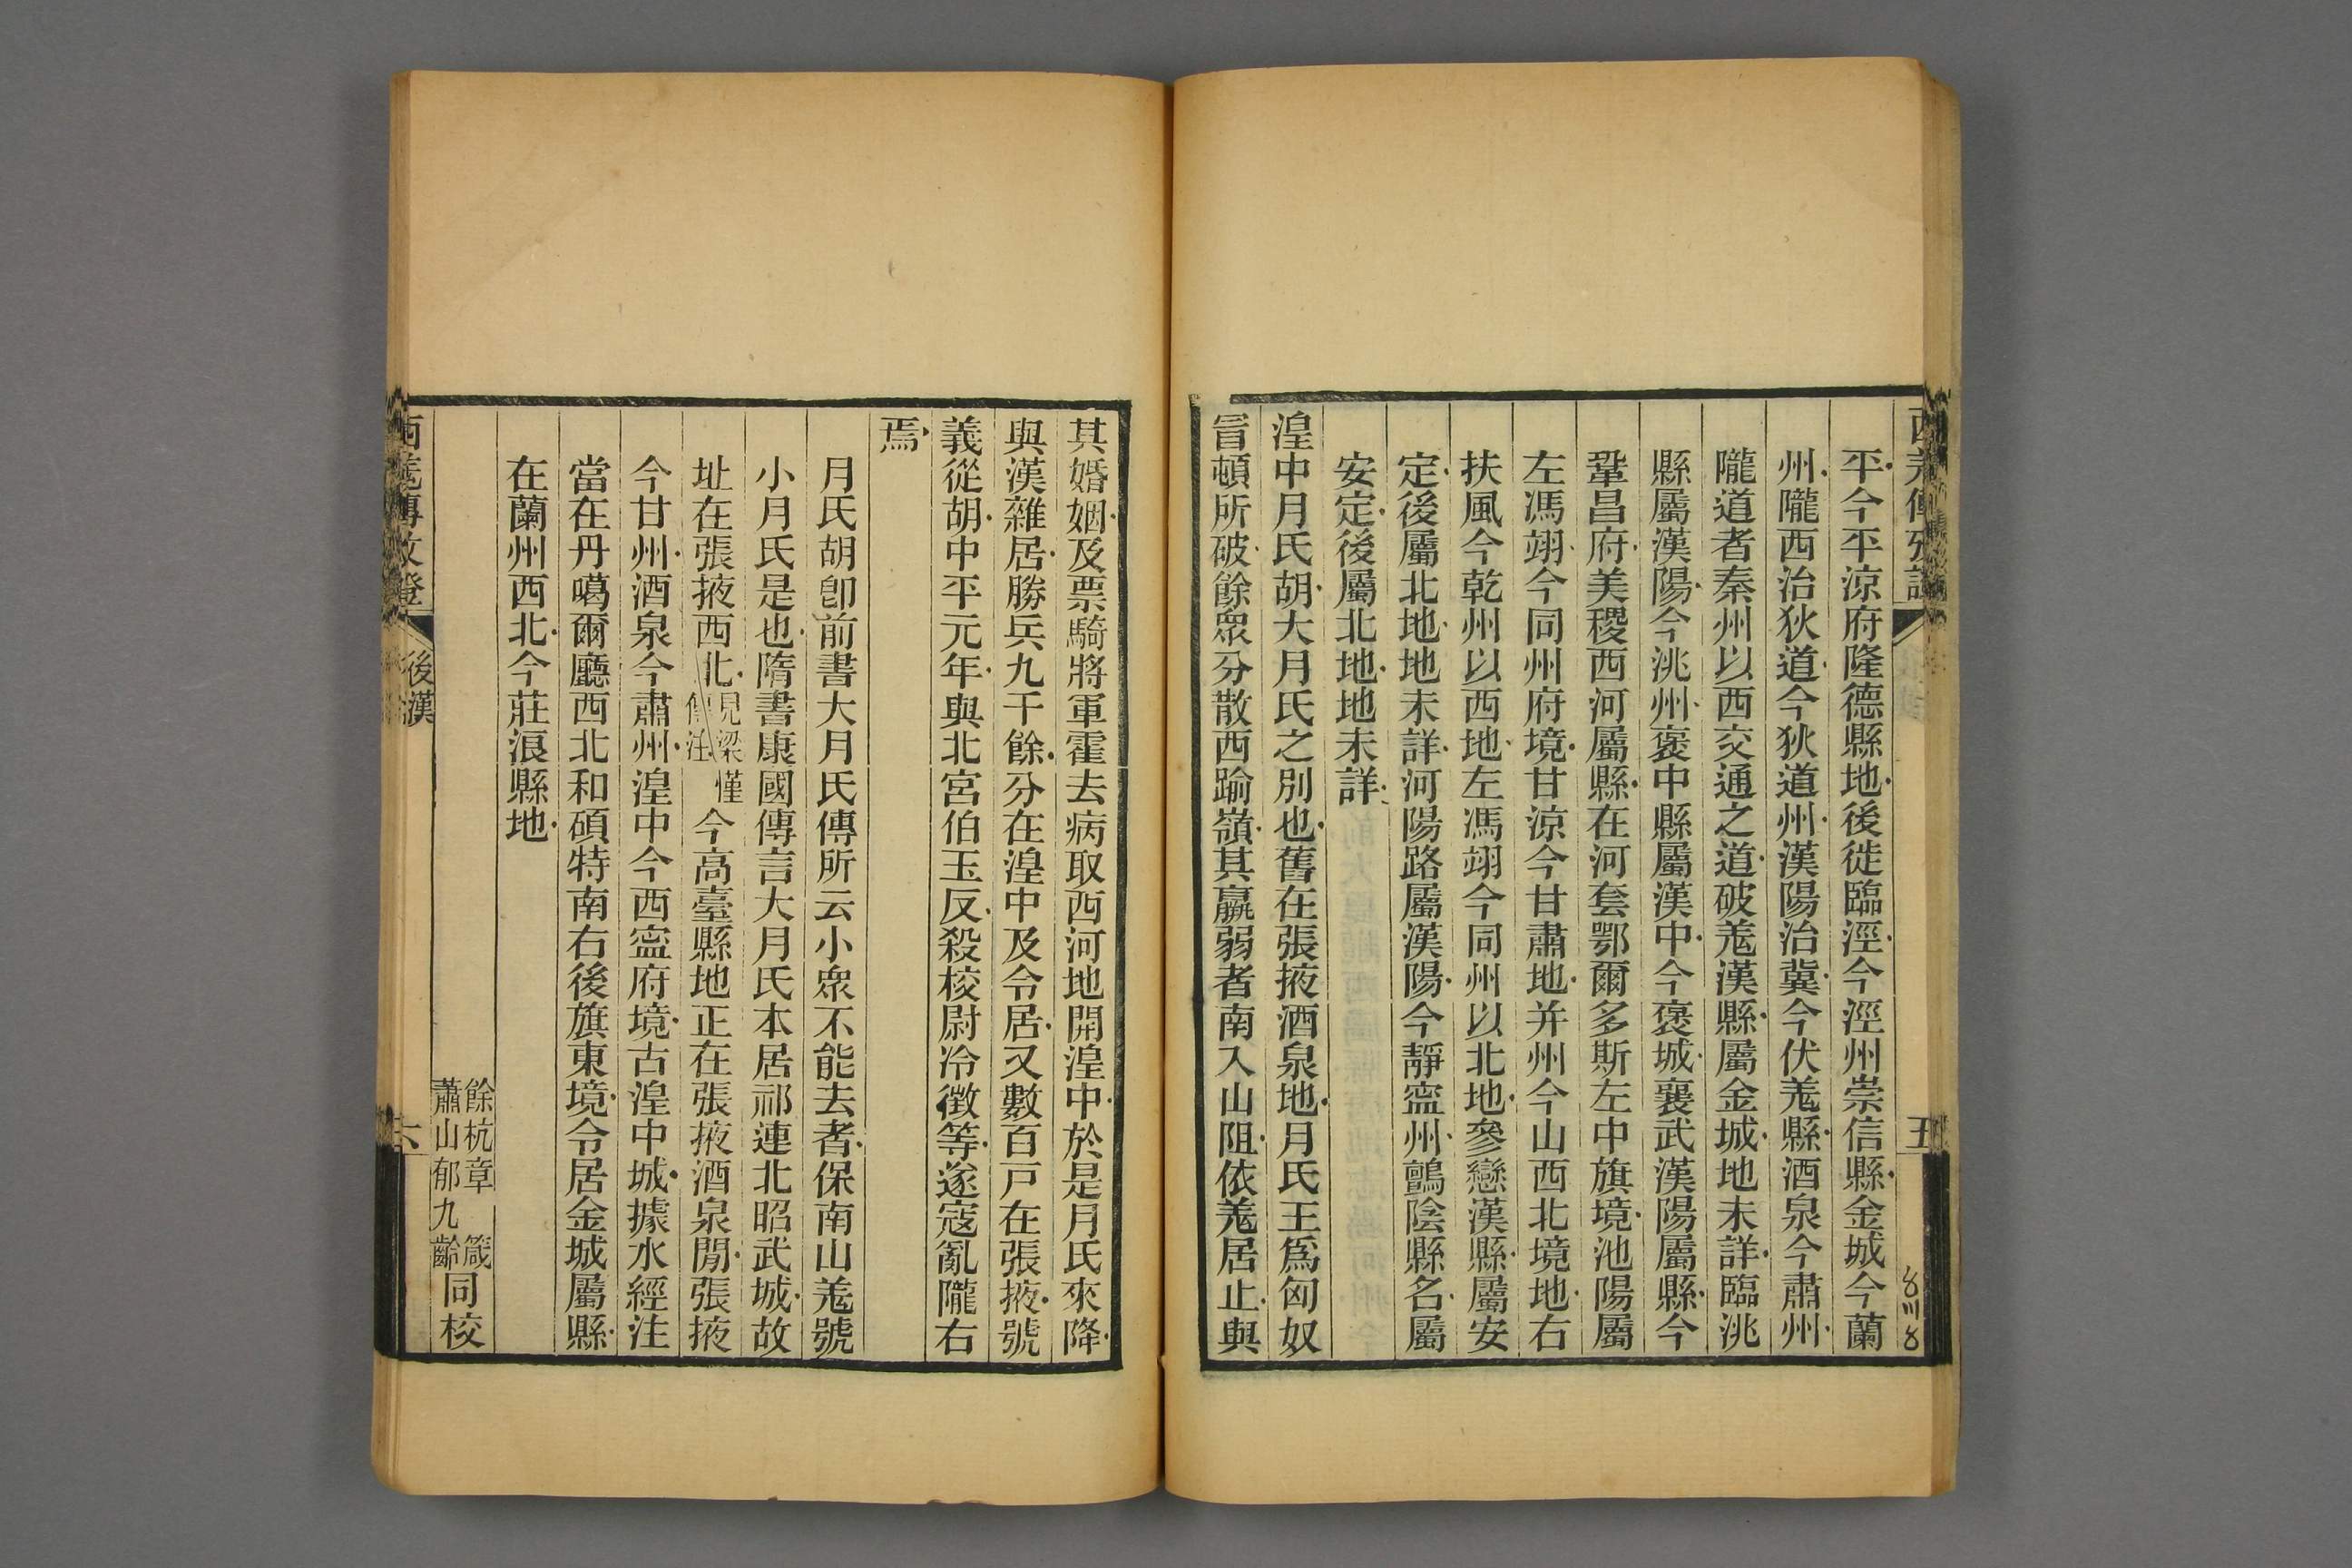 平今平涼府隆德縣地後徙臨涇今涇州崇信縣金城今蘭
州隴西治狄道今狄道州漢陽治冀今伏羌縣酒泉今肅州
隴道者秦州以西交通之道破羌漢縣屬金城地未詳臨洮
縣屬漢陽今洮州褒中縣屬漢中今褒城襄武漢陽屬縣今
鞏昌府美稷西河屬縣在河套鄂爾多斯左中旗境池陽屬
左馮翊今同州府境甘涼今甘肅地并州今山西北境地右
扶風今乾州以西地左馮翊今同州以北地參䜌漢縣屬安
定後屬北地地未詳河陽路屬漢陽今靜寍州鸇陰縣名屬
安定後屬北地地未詳
湟中月氏胡大月氏之別也舊在張掖酒泉地月氏王爲匈奴
冒頓所破餘眾分散西踰嶺其羸弱者南入山阻依羌居止與
其婚姻及票騎將軍霍去病取西河地開湟中於是月氏來降
與漢雜居勝兵九千餘分在湟中及令居又數百戸在張掖號
義從胡中平元年與北宮伯玉反殺校尉冷徵等遂寇亂隴右
焉
月氏胡卽前書大月氏傳所云小眾不能去者保南山羌號
小月氏是也隋書康國傳言大月氏本居祁連北昭武城故
址在張掖西北見梁慬傳注今高臺縣地正在張掖酒泉閒張掖
今甘州酒泉今肅州湟中今西寍府境古湟中城據水經注
當在丹噶爾廳西北和碩特南右後旗東境令居金城屬縣
在蘭州西北今莊浪縣地
餘杭章　箴
蕭山郁九齡同校
西羌傳攷證
後漢
六